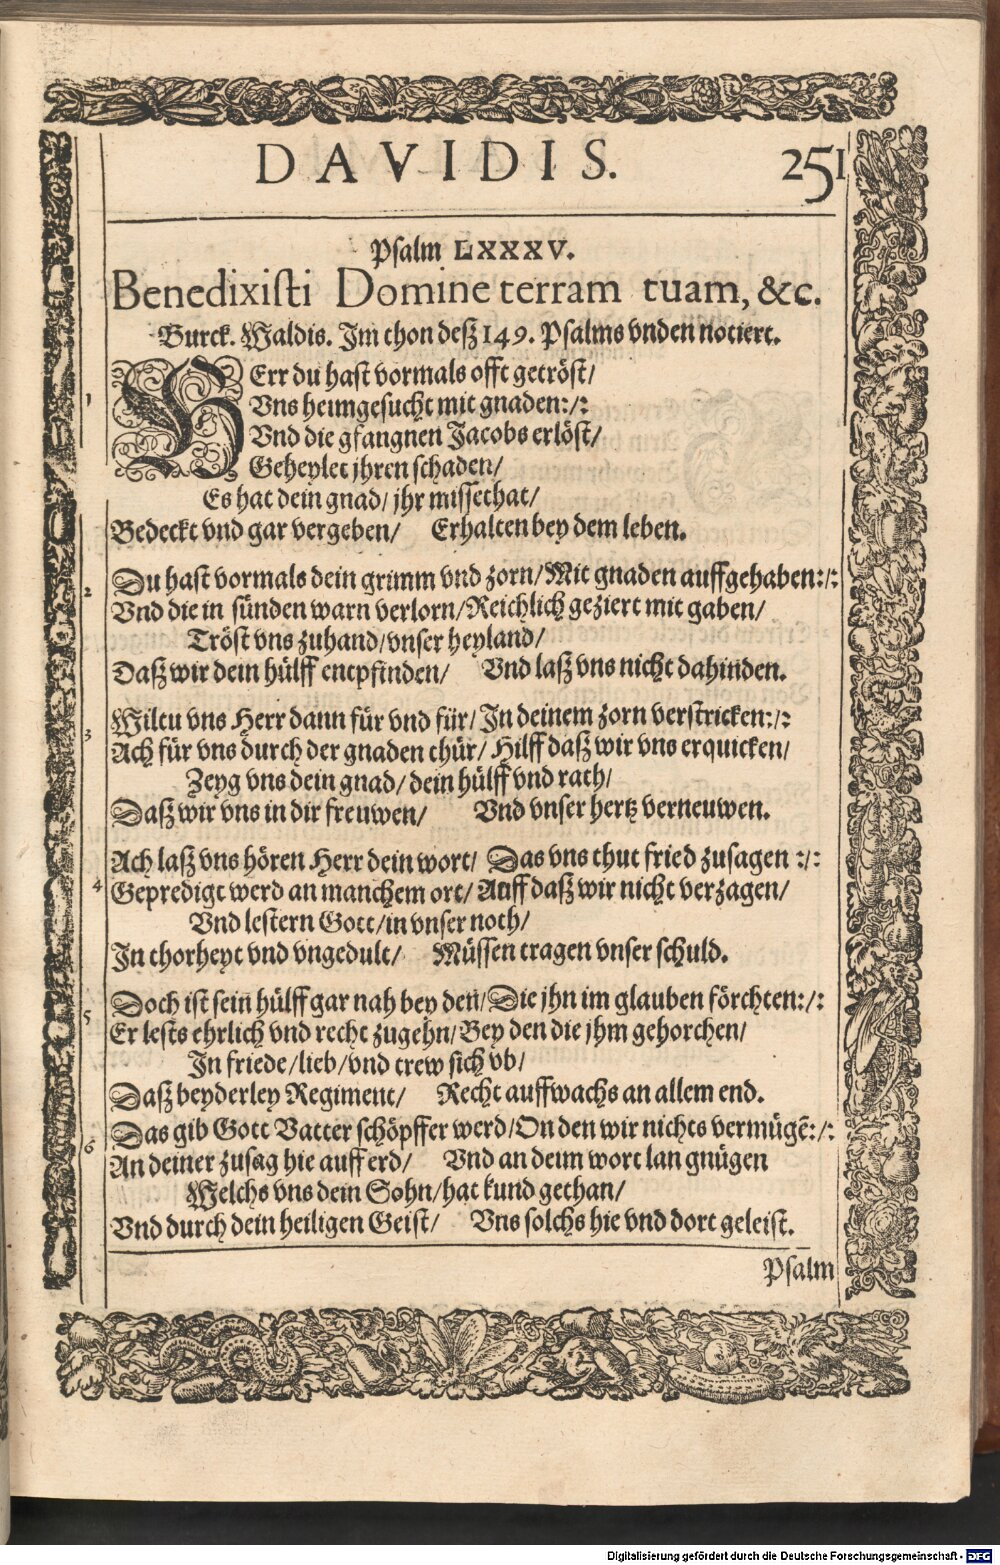 DAVIDIS. 251
Psalm LXXXV.
Benedixisti Domine terram tuam, &c.
Burck. Waldis. Im thon deß 149. Psalms vnden notiert.
1 HErr du hast vormals offt getröst/
Vns heimgesucht mit gnaden:/:
Vnd die gfangnen Jacobs erlöst/
Geheylet jhren schaden/
Es hat dein gnad/ jhr missethat/
Bedeckt vnd gar vergeben/ Erhalten bey dem leben.
2 Du hast vormals dein grimm vnd zorn/ Mit gnaden auffgehaben:/:
Vnd die in sünden warn verlorn/ Reichlich geziert mit gaben/
Tröst vns zuhand/ vnser heyland/
Daß wir dein hülff entpfinden/ Vnd laß vns nicht dahinden.
3 Wiltu vns Herr dann für vnd für/ In deinem zorn verstricken:/:
Ach für vns durch der gnaden thür/ Hilff daß wir vns erquicken/
Zeyg vns dein gnad/ dein hülff vnd rath/
Daß wir vns in dir freuwen/ Vnd vnser hertz verneuwen.
4 Ach laß vns hören Herr dein wort/ Das vns thut fried zusagen :/:
Gepredigt werd an manchem ort/ Auff daß wir nicht verzagen/
Vnd lestern Gott/ in vnser noth/
In thorheyt vnd vngedult/ Müssen tragen vnser schuld.
5 Doch ist sein hülff gar nah bey den/ Die jhn im glauben förchten:/:
Er lests ehrlich vnd recht zugehn/ Bey den die jhm gehorchen/
In friede/ lieb/ vnd trew sich vb/
Daß beyderley Regiment/ Recht auffwachs an allem end.
6 Das gib Gott Vatter schöpffer werd/ On den wir nichts vermügẽ:/:
An deiner zusag hie auff erd/ Vnd an deim wort lan gnügen
Welchs vns dein Sohn/ hat kund gethan/
Vnd durch dein heiligen Geist/ Vns solchs hie vnd dort geleist.
Psalm
Digitalisierung gefördert durch die Deutsche Forschungsgemeinschaft - DFG